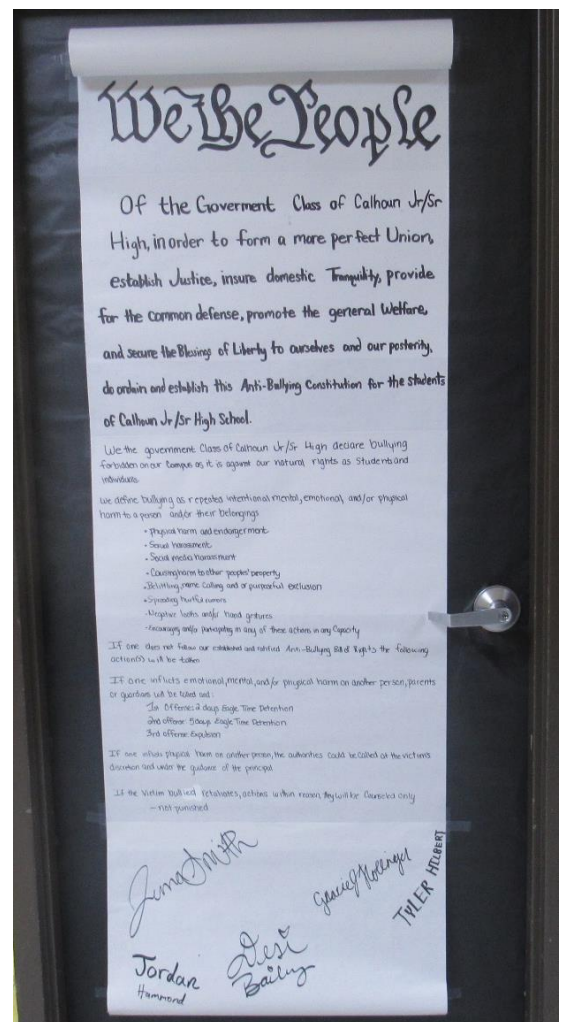 We the People
Of the Goverment Class of Calhoun Jr/Sr
High, in order to form a more perfect Union,
establish Justice, insure domestic Tranquility, provide
for the common defense, promote the general Welfare,
and secure the Blessings of Liberty to ourselves and our posterity,
do ordain and establish this Anti-Bullying Constitution for the students
of Calhoun Jr/Sr High School.
We the government Class of Calhoun Jr/Sr High declare bullying
forbidden on our Campus as it is against our natural rights as Students and
individuals
We define bullying as repeated intentional mental, emotional, and/or physical
harm to a person and/or their belongings
- Physical harm and endangerment
- Sexual harassment
- Social media harassment
- Causing harm to other peoples' property
- Belittling, name calling and or purposeful exclusion
- Spreading hurtful rumors
- Negative looks and/or hand gestures
- Encouraging and/or participating in any of these actions in any Capacity
If one does not follow our established and ratified Anti-Bullying Bill of Rights the following
action(s) will be taken
If one inflicts emotional, mental, and/or physical harm on another person, parents
or guardians will be called and:
1st Offense: 2 days Eagle Time Detention
2nd offense 5 days Eagle Time Detention
3rd offense Expulsion
If one inflicts physical harm on another person, the authorities could be called at the victims
discretion and under the guidance of the principal
If the Victim bullied retaliates, actions within reason, they will be Counseled only
- not punished
Smith
Gracie
TYLER HILBERT
Jordan
Hammond
Desi
Bailey